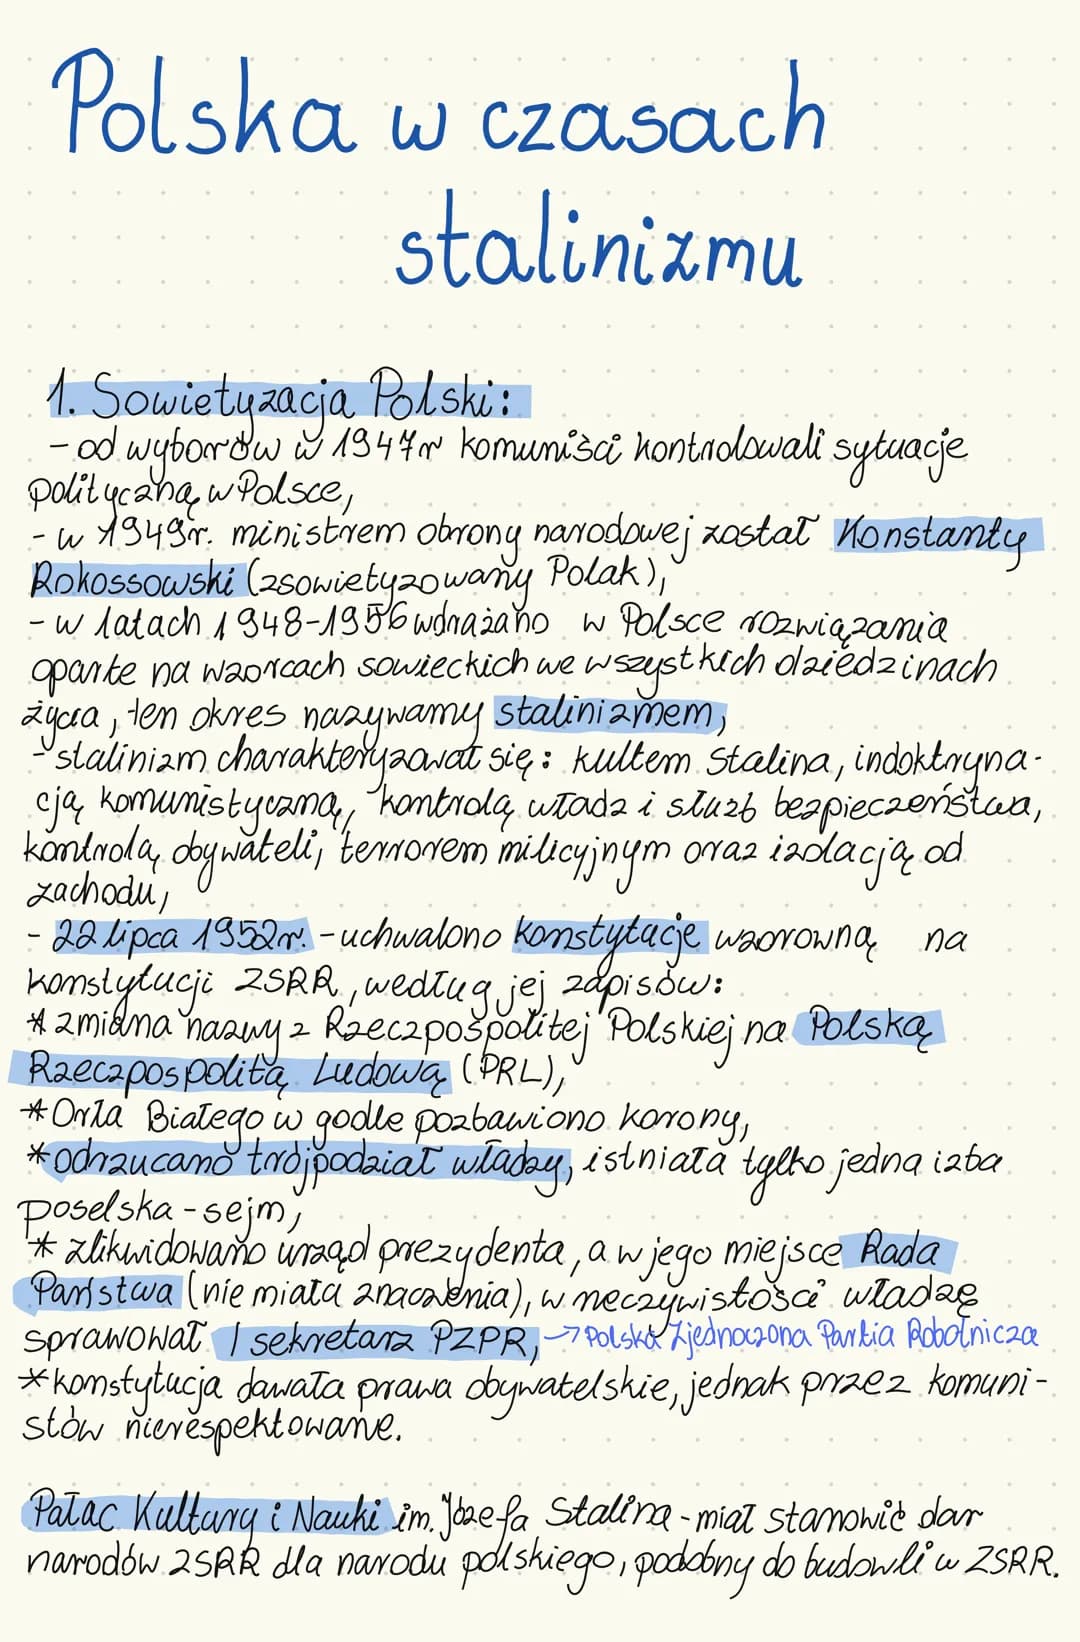 Polska w czasach
stalinizmu
1. Sowietyzacja Polski:
- od wyborów w 1947r komuniści kontrolowali sytuacje
polityczną w Polsce,
- w 1949r. ministrem obrony narodowej został Konstanty
Rokossowski (zsowietyzowany Polak),
- w latach 1948-1956 wdrażano w Polsce rozwiązania
oparte na wzorcach sowieckich we wszystkich dziedzinach
życia, ten okres nazywamy stalinizmem,
- stalinizm charakteryzował się: kultem Stalina, indoktryna-
cją komunistyczną, kontrolą władz i służb bezpieczeństwa,
kontrolą obywateli, terrorem milicyjnym oraz izolacją od
zachodu,
- 22 lipca 1952r. - uchwalono konstytucje wzorowną na
konstytucji ZSRR, według jej zapisów:
* zmiana nazwy z Rzeczpospolitej Polskiej na Polską
Rzeczpospolitą Ludową (PRL),
* Orła Białego w godle pozbawiono korony,
* odrzucano trójpodział władzy, istniała tylko jedna izba
poselska - sejm,
* zlikwidowano urząd prezydenta, a w jego miejsce Rada
Państwa (nie miała znaczenia), w rzeczywistości władzę
sprawował I sekretarz PZPR, → Polska Zjednoczona Partia Robotnicza
* konstytucja dawała prawa obywatelskie, jednak przez komuni-
stów nierespektowane.
Pałac Kultury i Nauki im. Józefa Stalina - miał stanowić dar
narodów ZSRR dla narodu polskiego, podobny do budowli w ZSRR.